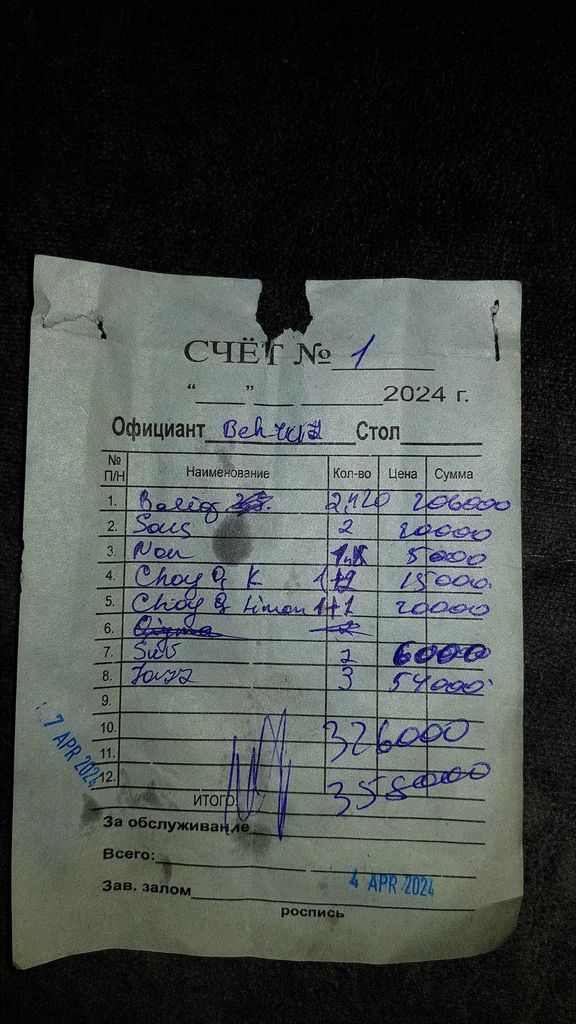 СЧЁТ № 1
“___”___ ________2024 г.
Официант Стол
№ П/Н Наименование Кол-во Цена Сумма
1. Baliq 2,420 206000
2. Sous 2 20000
3. Non 5000
4. Choy q K 15000
5. Choy q limon 1+1 20000
6.
7. Suv 6000
8. 3 54000
9.
10. 326000
11.
12. 358000
ИТОГО:
За обслуживание
Всего:
4 APR 2024
Зав. залом
роспись
7 APR 2024